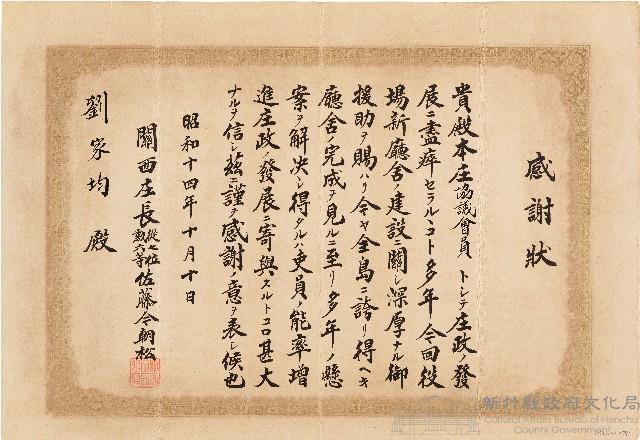 感謝狀
貴殿本庄協議會員トシテ庄政ノ發
展ニ盡瘁セラルヽコト多年今回役
場新廳舍ノ建設ニ關シ深厚ナル御
援助ヲ賜ハリ今ヤ全島ニ誇リ得ヘキ
廳舍ノ完成ヲ見ルニ至リ多年ノ懸
案ヲ解決シ得タルハ吏員ノ能率增
進庄政ノ發展ニ寄與スルトコロ甚大
ナルヲ信シ茲ニ謹テ感謝ノ意ヲ表シ候也
昭和十四年十月十日
關西庄長從七位勳六等佐藤令朝松
劉家均殿
新竹縣政府文化局
Cultural Affairs Bureau of Hsinchu
County Government